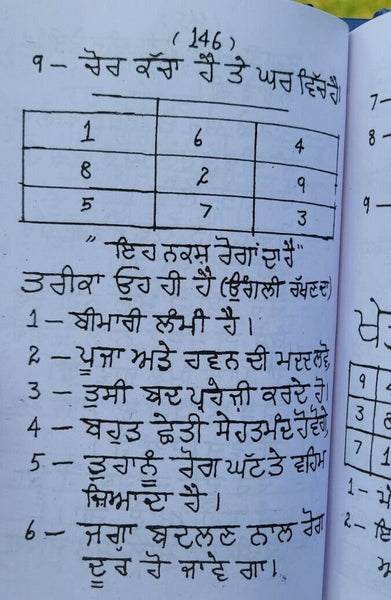 ( 146 )
੧ – ਚੋਰ ਕੱਚਾ ਹੈ ਤੇ ਘਰ ਵਿੱਚ ਹੈ।
1 6 4
8 2 9
5 7 3
" ਇਹ ਨਕਸ਼ ਰੋਗਾਂ ਦਾ ਹੈ "
ਤਰੀਕਾ ਉਹ ਹੀ ਹੈ (ਉਂਗਲੀ ਰੱਖਣ ਦਾ)
1 – ਬੀਮਾਰੀ ਲੰਮੀ ਹੈ।
2 – ਪੂਜਾ ਅਤੇ ਹਵਨ ਦੀ ਮਦਦ ਲਵੋ,
3 – ਤੁਸੀ ਬਦ ਪ੍ਰਹੇਜ਼ੀ ਕਰਦੇ ਹੋ।
4 – ਬਹੁਤ ਛੇਤੀ ਸੇਹਤਮੰਦ ਹੋਵੋਗੇ,
5 – ਤੁਹਾਨੂੰ ਰੋਗ ਘੱਟ ਤੇ ਵਹਿਮ
ਜ਼ਿਆਦਾ ਹੈ।
6 – ਜਗਾ ਬਦਲਣ ਨਾਲ ਰੋਗ
ਦੂਰ ਹੋ ਜਾਵੇ ਗਾ।
7 –
8 –
9 –
9
3
7 1
1 –
2 –